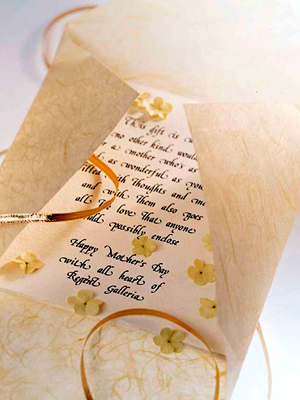 This gift is
no other kind, would
a mother who's as
as wonderful as you
with thoughts and me
and with Them also goes
all The love That anyone
could possibly enclose
Happy Mother's Day
with all heart of
Regent Galleria